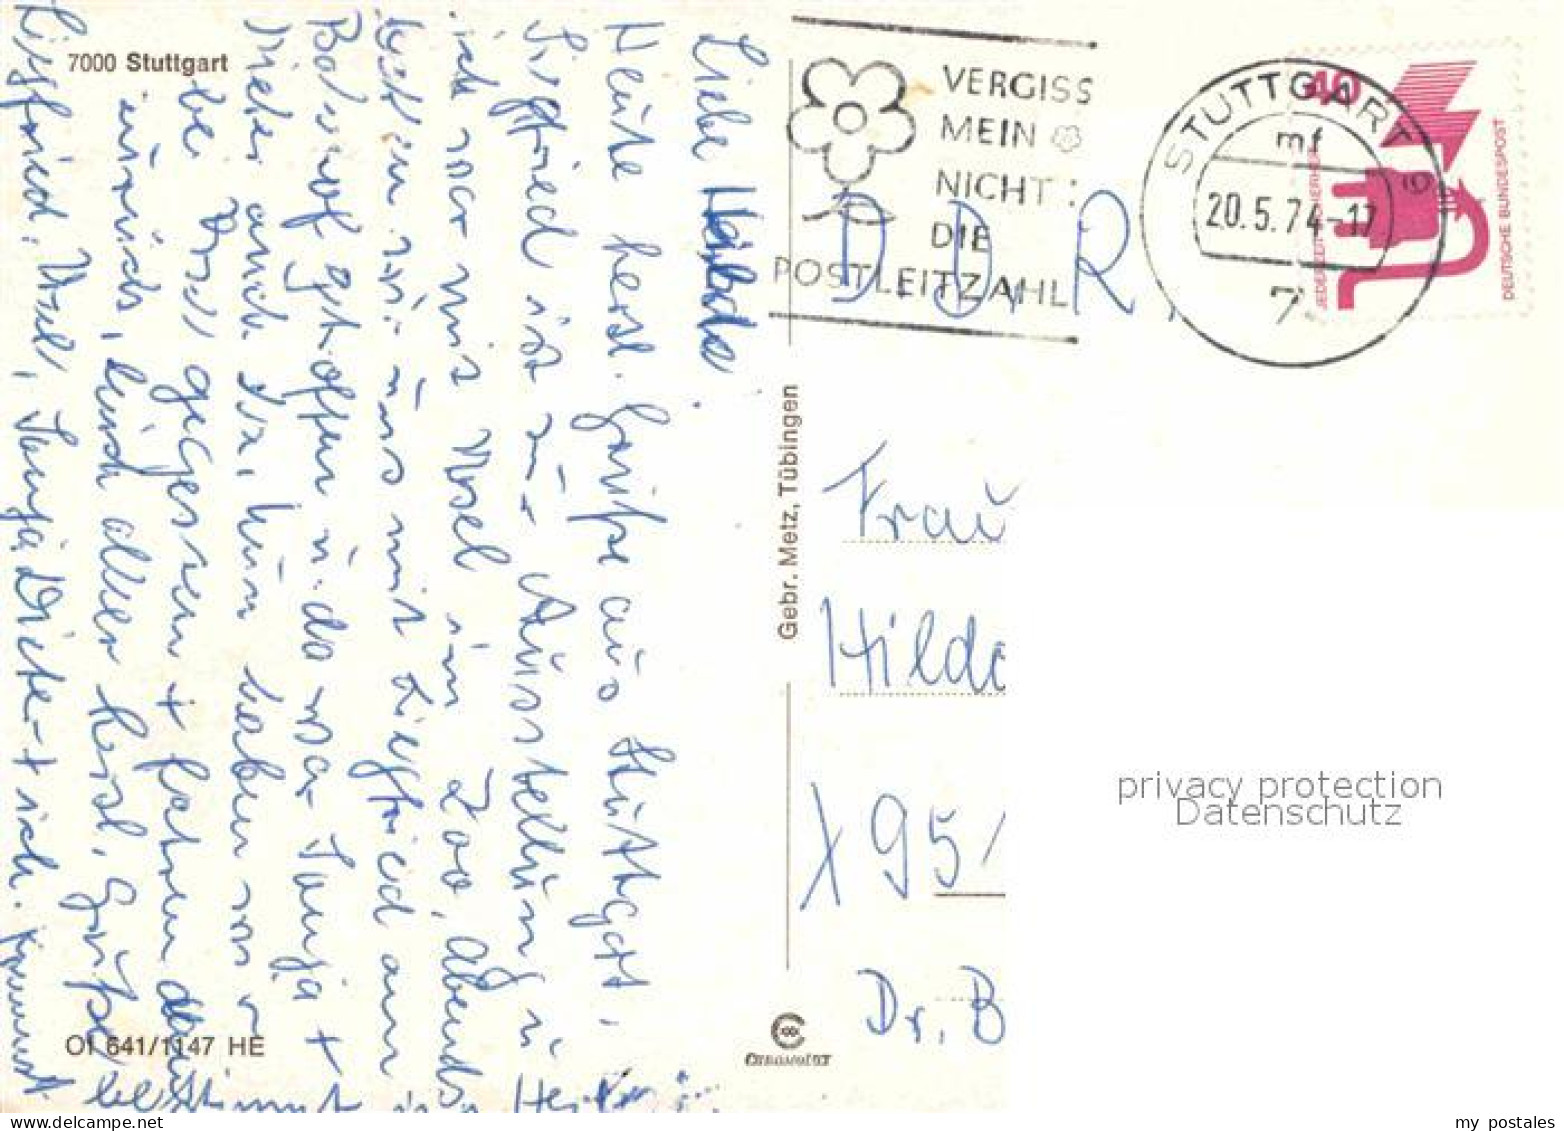 7000 Stuttgart
Liebe
Heute herzl. Grüße aus Stuttgart.
Siegfried ist zur Ausstellung u.
ich war mit Ursel im Zoo, abends
wir uns mit Siegfried am
Bahnhof getroffen u. da war Tanja +
Dieter auch da, nun haben wir
gegessen + fahren
zurück, euch allen herzl. Grüße
Siegfried, Ursel, Tanja, Dieter + ich.
OI 641/1147 HE
Gebr. Metz, Tübingen
VERGISS
MEIN
NICHT:
DIE
POSTLEITZAHL
STUTTGART
mf
20.5.74-17
7
40
JEDERZEIT SICHERHEIT
DEUTSCHE BUNDESPOST
D. D. R.
Frau
Hilde
X 95
Dr. B
privacy protection
Datenschutz
my postales